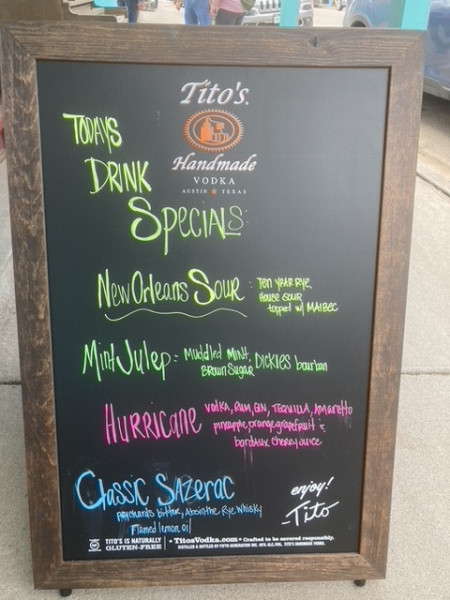 Tito's.
Handmade
VODKA
AUSTIN TEXAS
TODAYS
DRINK
SPECIALS:
New Orleans Sour : Ten year rye,
House sour
topped w/ MALBEC
Mint Julep : Muddled Mint,
Brown Sugar DICKIES bourban
HURRICANE VODKA, RUM, GIN, TEQUILLA, AMARETTO
pineapple, orange, grapefruit +
bordaux cherry juice
Classic SAZERAC
peychards bitter, Absinthe, Rye Whisky
Flamed lemon oil
enjoy!
-Tito
TITO'S IS NATURALLY
GLUTEN-FREE
• TitosVodka.com • Crafted to be savored responsibly.
DISTILLED & BOTTLED BY FIFTH GENERATION INC. 40% ALC./VOL. TITO'S HANDMADE VODKA.